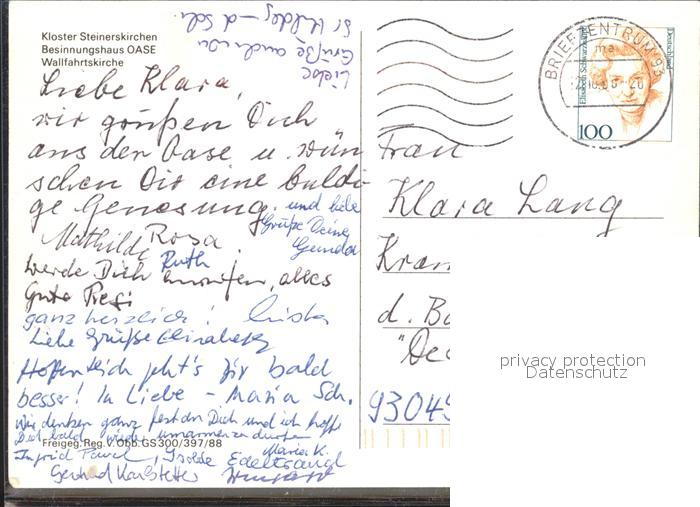 Kloster Steinerskirchen
Besinnungshaus OASE
Wallfahrtskirche
Liebe
Grüße auch von
Sr Hildeg - d Sch.
Liebe Klara,
wir grüßen Dich
aus der Oase u. wün
schen Dir eine baldi
ge Genesung. und liebe
Grüße Deine
Gunda
Mathilde Rosa
Ruth
werde Dich anrufen, alles
Gute Resi
ganz herzlich! Christa
Liebe Grüße Elisabeth
Hoffentlich geht's Dir bald
besser! In Liebe - Maria Sch.
Wir denken ganz fest an Dich und ich hoffe
Dich bald wieder umarmen zu dürfen
Maria K.
Freigeg. Reg. v. Obb. GS 300/397/88
Ingrid Isolde Edeltraud
Gertrud Karlstetter
BRIEFZENTRUM 93
Elisabeth Schwarzhaupt
Deutschland
100
Frau
Klara Lang
Kran
d. Ba
93049
privacy protection
Datenschutz